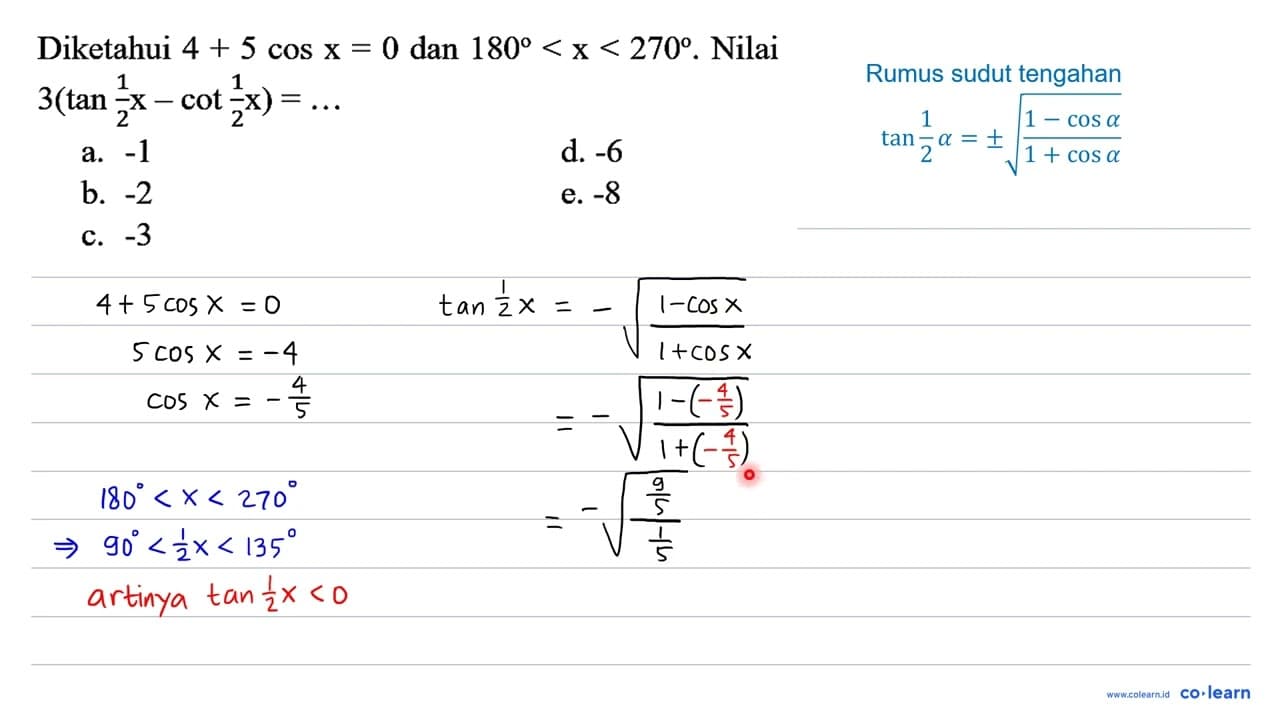 Diketahui 4 + 5 cos x = 0 dan 180° < x < 270°. Nilai
3(tan 1/2 x – cot 1/2 x) = ...
a. -1
b. -2
c. -3
d. -6
e. -8
Rumus sudut tengahan
tan 1/2 α = ± √((1 − cos α)/(1 + cos α))
4 + 5 cos x = 0
5 cos x = -4
cos x = - 4/5
180° < x < 270°
⇒ 90° < 1/2 x < 135°
artinya tan 1/2 x < 0
tan 1/2 x = - √((1 - cos x)/(1 + cos x))
= - √((1 - (- 4/5))/(1 + (- 4/5)))
= - √((9/5)/(1/5))
www.colearn.id co·learn